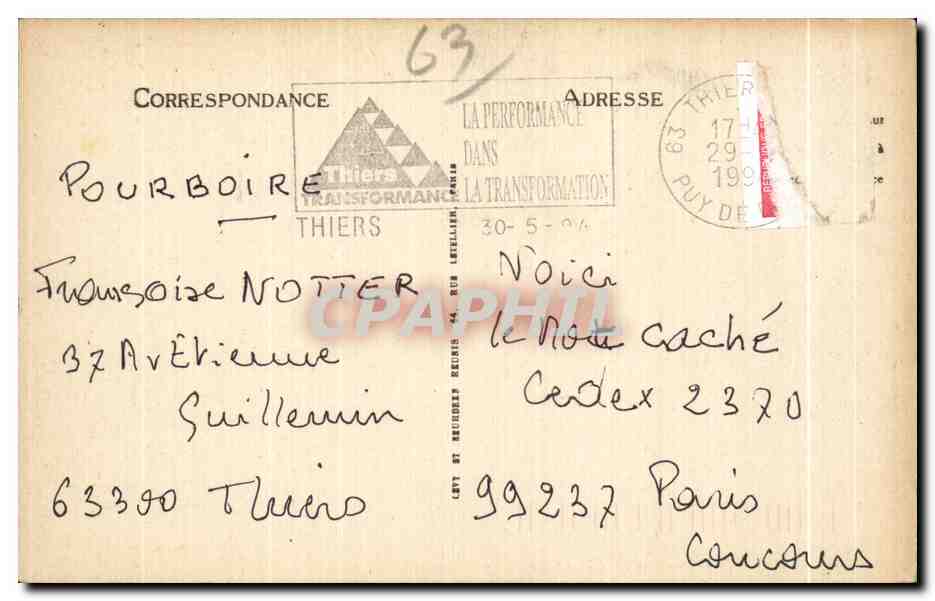 63
CORRESPONDANCE
ADRESSE
Thiers
TRANSFORMANCE
THIERS
LA PERFORMANCE
DANS
LA TRANSFORMATION
30-5-94
63 THIER
17H
29-
199
PUY DE
POURBOIRE
Françoise NOTTER
37 Av Etienne
Guillemin
63300 Thiers
LEVY ET NEURDEIN REUNIS 44, RUE LETELLIER, PARIS
CPAPHIL
Voici
le Mot caché
Cedex 2370
99237 Paris
Concours